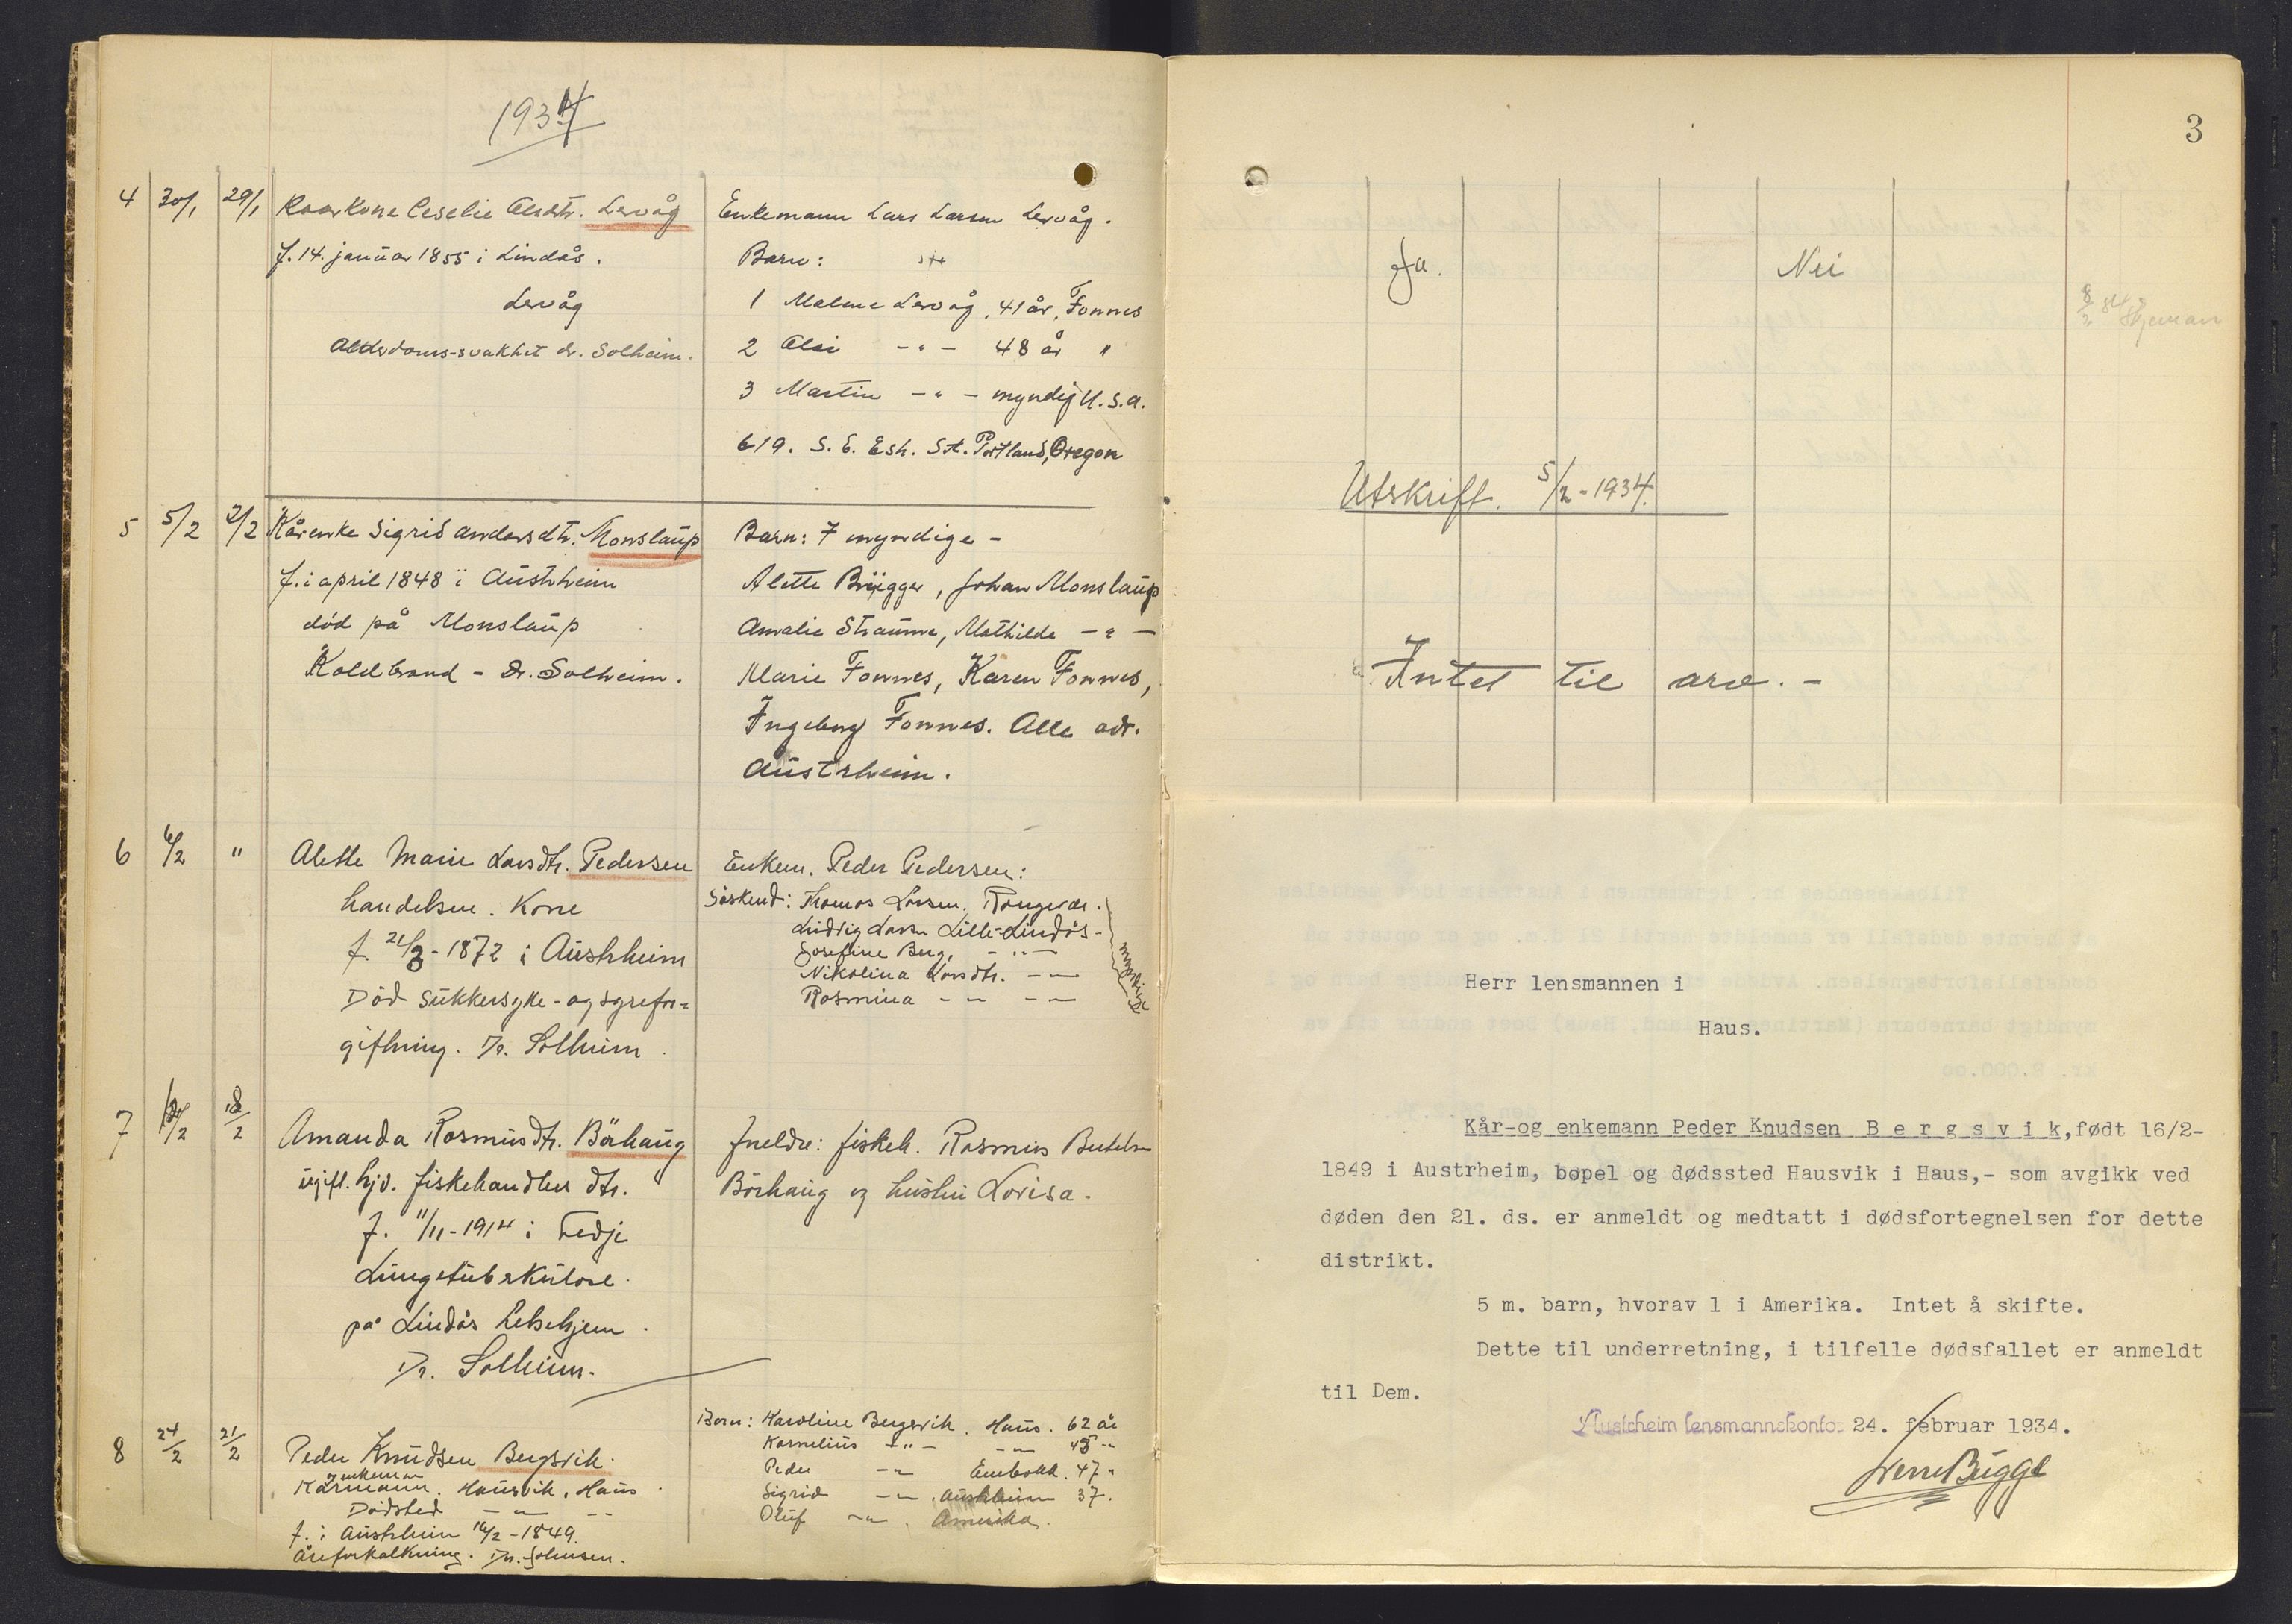 1934
4 30/1 29/1 Kaarkone Ceselie Olsdtr. Lervåg
f. 14. januar 1855 i Lindås.
Lervåg
Alderdoms-svakhet dr. Solheim.
Enkemann Lars Larsen Lervåg.
Barn:
1 Malene Lervåg, 41 år, Fonnes
2 Olai -"- 48 år "
3 Martin -"- myndig U.S.A.
619. S. E. Esh. St. Portland, Oregon
5 5/2 2/2 Kårenke Sigrid Andersdtr. Monslaup
f. i april 1848 i Austrheim
død på Monslaup
Koldbrand - Dr. Solheim.
Barn: 7 myndige -
Alette Brügger, Johan Monslaup
Amalie Straume, Mathilde -"-
Marie Fonnes, Karen Fonnes,
Ingeborg Fonnes. Alle adr.
Austrheim.
6 6/2 " Alette Marie Larsdtr. Pedersen
handelsm. Kone
f. 21/3-1872 i Austrheim
Död sukkersyke- og syrefor=
giftning. Dr. Solheim.
Enkem. Peder Pedersen:
Söskend: Thomas Larsen, Rongevær.
Ludvig Larsen Lille-Lindås-
Josefine Berg, -"-
Nikolina Larsdtr. -"-
Rasmina -"- -"-
myndige
7 18/2 Amanda Rasmusdtr. Börhaug
ugift. hjv. fiskehandlers dtr.
f. 11/11-1914 i Fedje
Lungetuberkulose.
på Lindås helsehjem.
Dr. Solheim.
Foreldre: fiskeh. Rasmus Bertelsen
Börhaug og hustru Lovisa.
8 24/2 21/2 Peder Knudsen Bergsvik.
og enkemann
Kårmann. Hausvik, Haus.
Dödsted -"- -"-
f. i Austrheim 16/2-1849.
Åreforkalkning. Dr. Johnsen.
Barn: Karoline Bergsvik. Haus. 62 år
Kornelius -"- -"- 45 "
Peder -"- 47 "
Sigrid -"- . Austrheim 37.
Oluf -"- . Amerika.
3
Ja. Nei
8/2 Skjemaer
Utskrift. 5/2-1934.
Intet til arv.-
Herr lensmannen i
Haus.
Kår-og enkemann Peder Knudsen B e r g s v i k,født 16/2-
1849 i Austrheim, bopel og dødssted Hausvik i Haus,- som avgikk ved
døden den 21. ds. er anmeldt og medtatt i dødsfortegnelsen for dette
distrikt.
5 m. barn, hvorav 1 i Amerika. Intet å skifte.
Dette til underretning, i tilfelle dødsfallet er anmeldt
til Dem.
Austrheim lensmannskontor 24. februar 1934.
Sverre Bugge